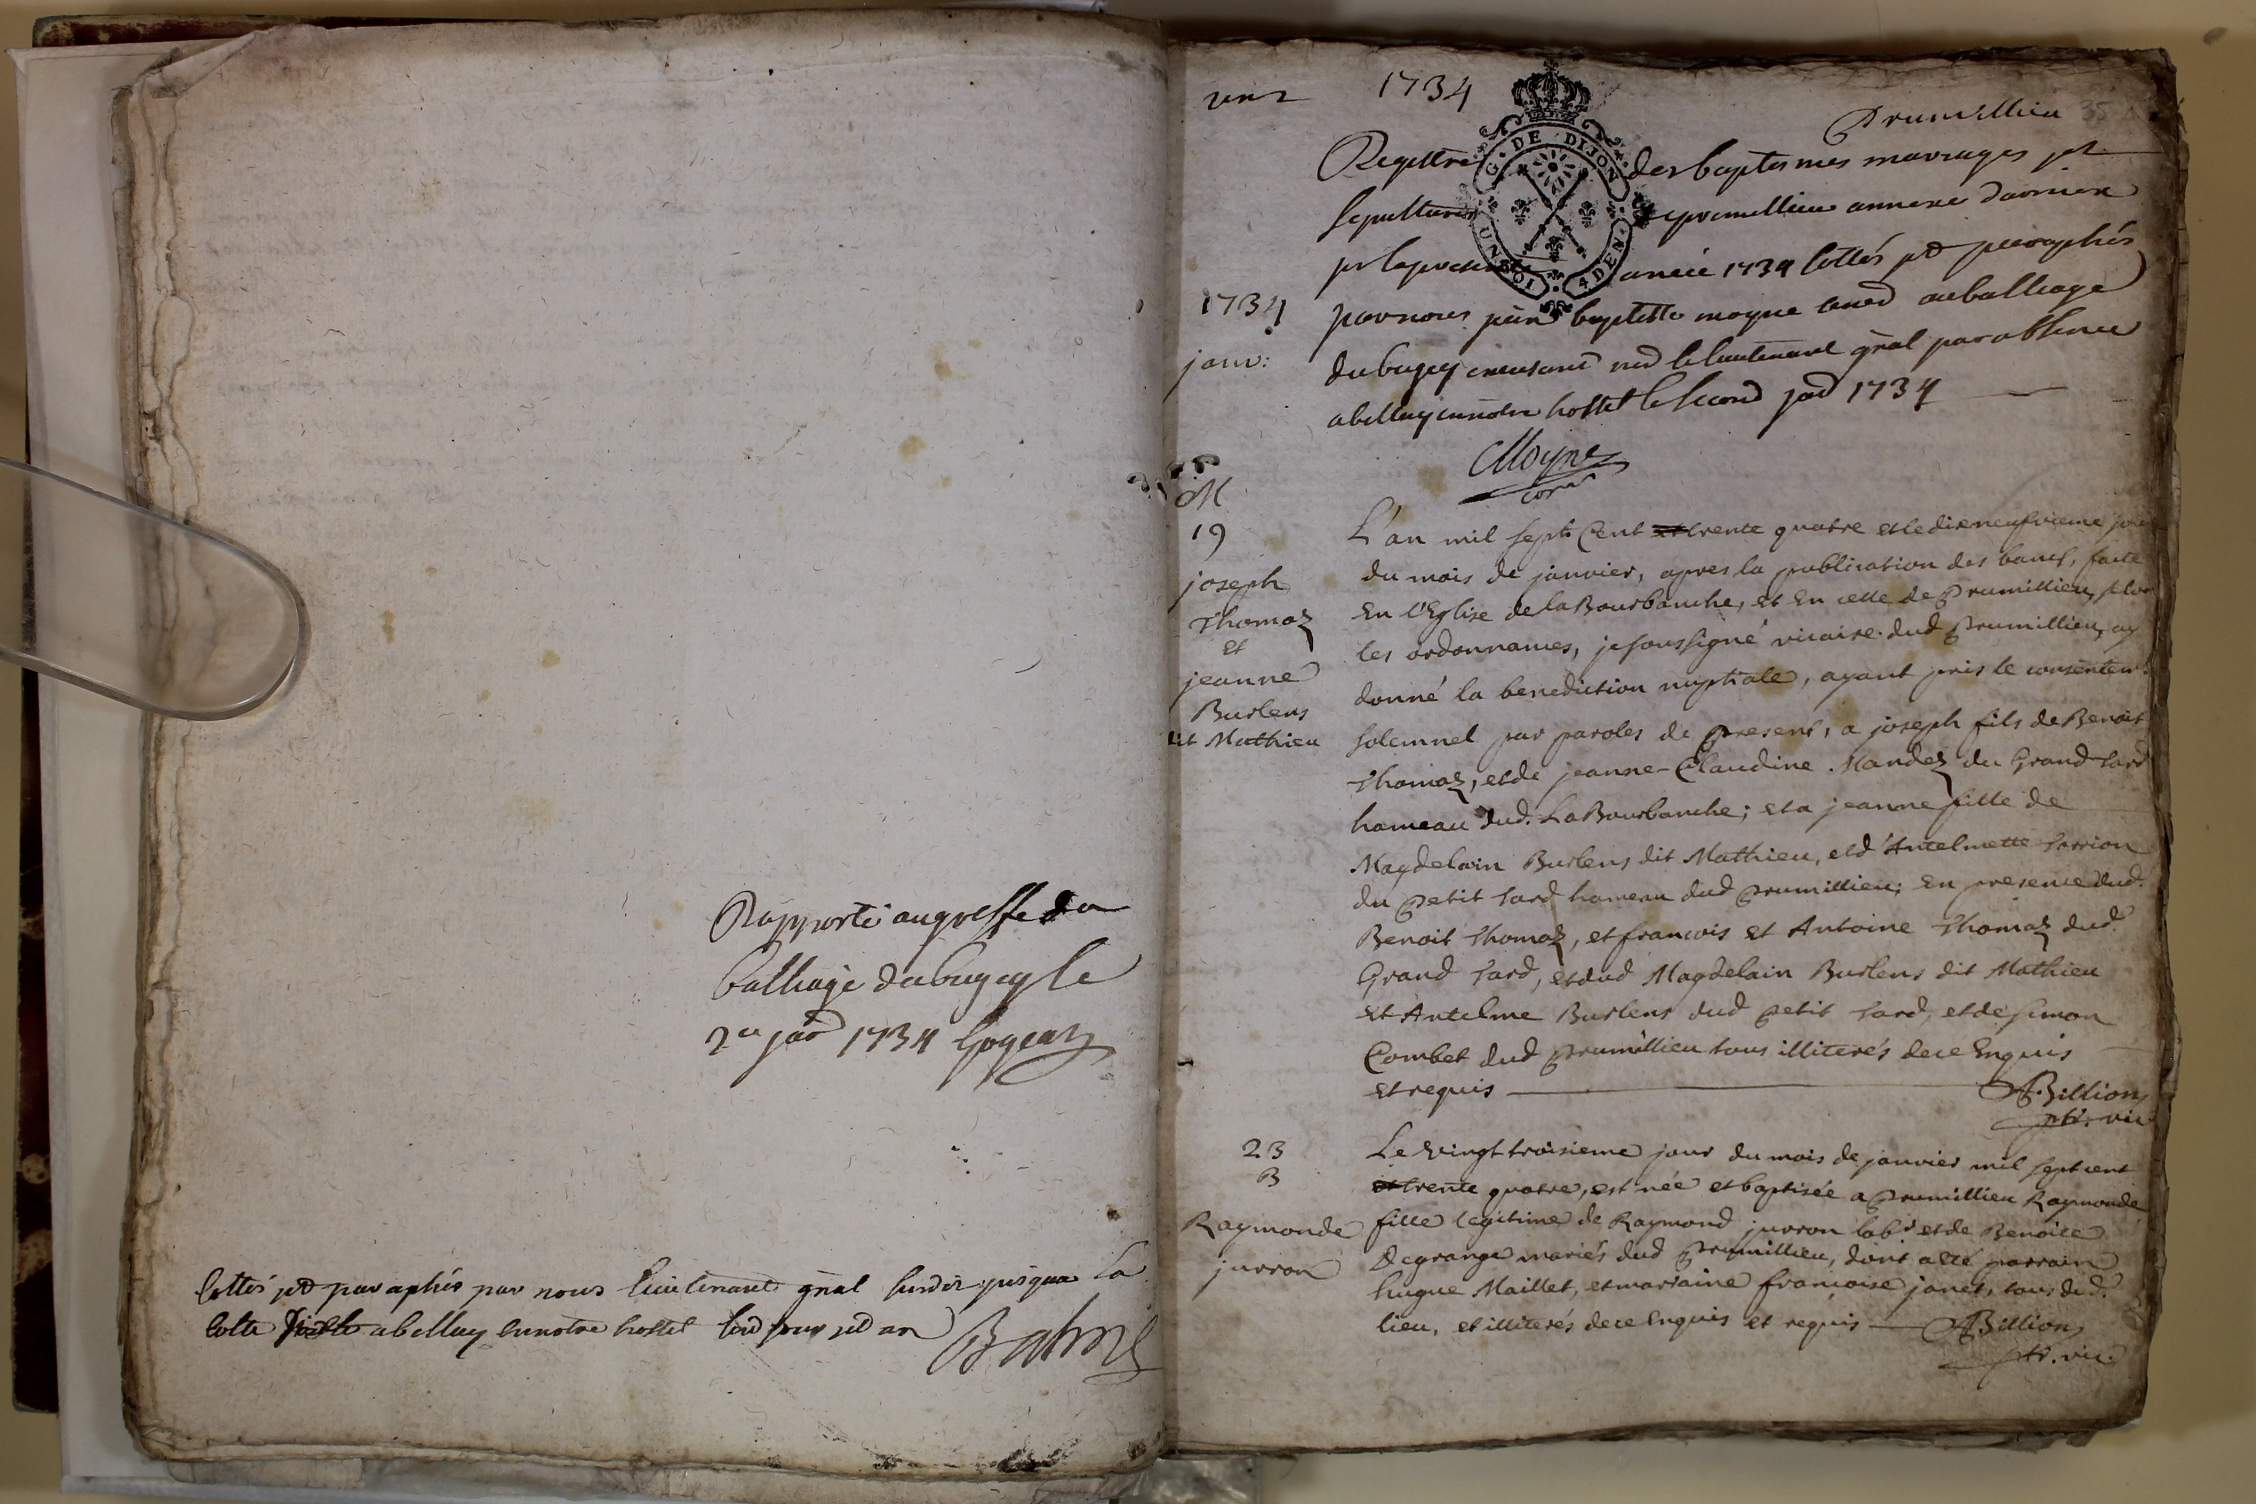 Rapporté au greffe du
balliage du bugey le
2er jad 1734 Gogeat
Cottés et paraphés par nous lieutenant gnal susdit jusqua la
cotte abelley en notre hostel led jour et an
Balme
une
1734
Prumillieu 35
G. DE DIJON
UN SOL 4 DEN.
Registre des baptesmes mariages et
sepultures de premillieu annexe darmieu
pr la presente année 1734 cottés et paraphés
par nous jean baptiste moyne coner au balliage
du bugey exercant po le lieutenant gnal par absence
abelley en notre hostel le second jad 1734
1734
janv:
CMoyne
coner
M
19
joseph
Thomaz
et
jeanne
Burlens
dit Mathieu
L'an mil sept Cent et trente quatre et le dixneufvieme jour
du mois de janvier, apres la publication des bancs, faite
En l'Eglise de la Bourbanche, et En celle de Prumillieu, selon
les ordonnances, je soussigné vicaire dud Prumillieu, ay
donné la benediction nuptiale, ayant pris le consentem.t
solemnel par paroles de present, a joseph fils de Benoit
Thomaz, et de jeanne-Claudine Mandez du Grand tard
hameau dud. La Bourbanche; et a jeanne fille de
Magdelain Burlens dit Mathieu, et d'Antelmette tarrion
du Petit tard hameau dud Prumillieu; En presence dud.
Benoit Thomaz, et francois et Antoine Thomaz dud.
Grand tard, et dud Magdelain Burlens dit Mathieu
et Antelme Burlens dud Petit tard, et de simon
Combet dud Prumillieu tous illiterés de ce Enquis
et requis
ABillion
ptr. vic.
23
B
Raymonde
jurron
Le vingt troisieme jour du mois de janvier mil sept cent
et trente quatre, est née et baptisée a Prumillieu Raymonde
fille legitime de Raymond jurron labr et de Benoite
Degrange mariés dud Prumillieu, dont a eté parrain
hugue Maillet, et marraine francoise janet, tous dud.
lieu, et illiterés de ce Enquis et requis ABillion
ptr. vic.